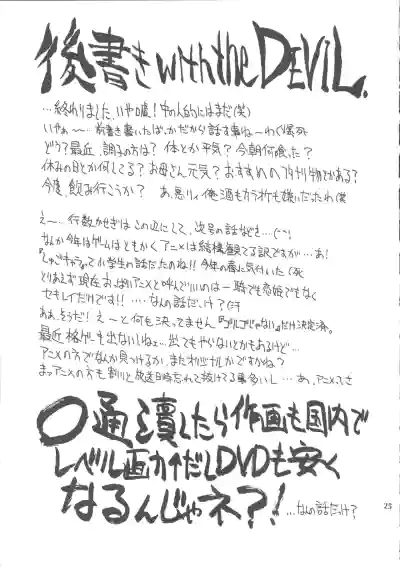 後書き with the DEVIL.
…終わりました、いや嘘!中の人的にはまだ(笑)
いやぁ〜…前書き書いたばっかだから話す事ね〜わぐ爆死
どう?最近、調子の方は?体とか平気?今朝何喰った?
休みの日とか何してる?お母さん元気?おすすめの
今度、飲み行こうか?あ、悪りィ俺酒もカラ所も嫌いだったわ(笑
え〜…行数かせぎはこの辺にして、次号の話などを…(ーー;)
なんか今年はゲームはともかくアニメは結構観てる訳ですが…あ!
『しゅごキャラ』って小学生の話だったのね!!今年の春に気付いた(死
とりあえず現在おっぱいアニメと呼んでいいのは一騎でも恋姫でもなく
セキレイだけです!!……なんの話だっけ?
ああ、そうだ!え〜と何も決ってません『ゴルゴじゃない』だけ決定済。
最近格ゲーも出ないしねぇ…出てもやらないとかもあるけど…
アニメの方でなんか見つけるか、またオリジナルかですかね?
まっアニメの方も割りと放送日時忘れて抜けてる事多いし…あ、アニメってさ
○通潰したら作画も国内で
レベル高カイだしDVDも安く
なるんじゃネ?!
…なんの話だっけ?
25